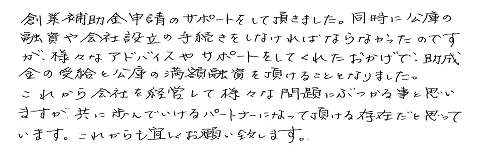 創業補助金申請のサポートをして頂きました。同時に公庫の
融資や会社設立の手続きをしなければならなかったのです
が、様々なアドバイスやサポートをしてくれたおかげで、助成
金の受給と公庫の満額融資を頂けることとなりました。
これから会社を経営して様々な問題にぶつかる事と思い
ますが、共に歩んでいけるパートナーになって頂ける存在だと思って
います。これからも宜しくお願い致します。